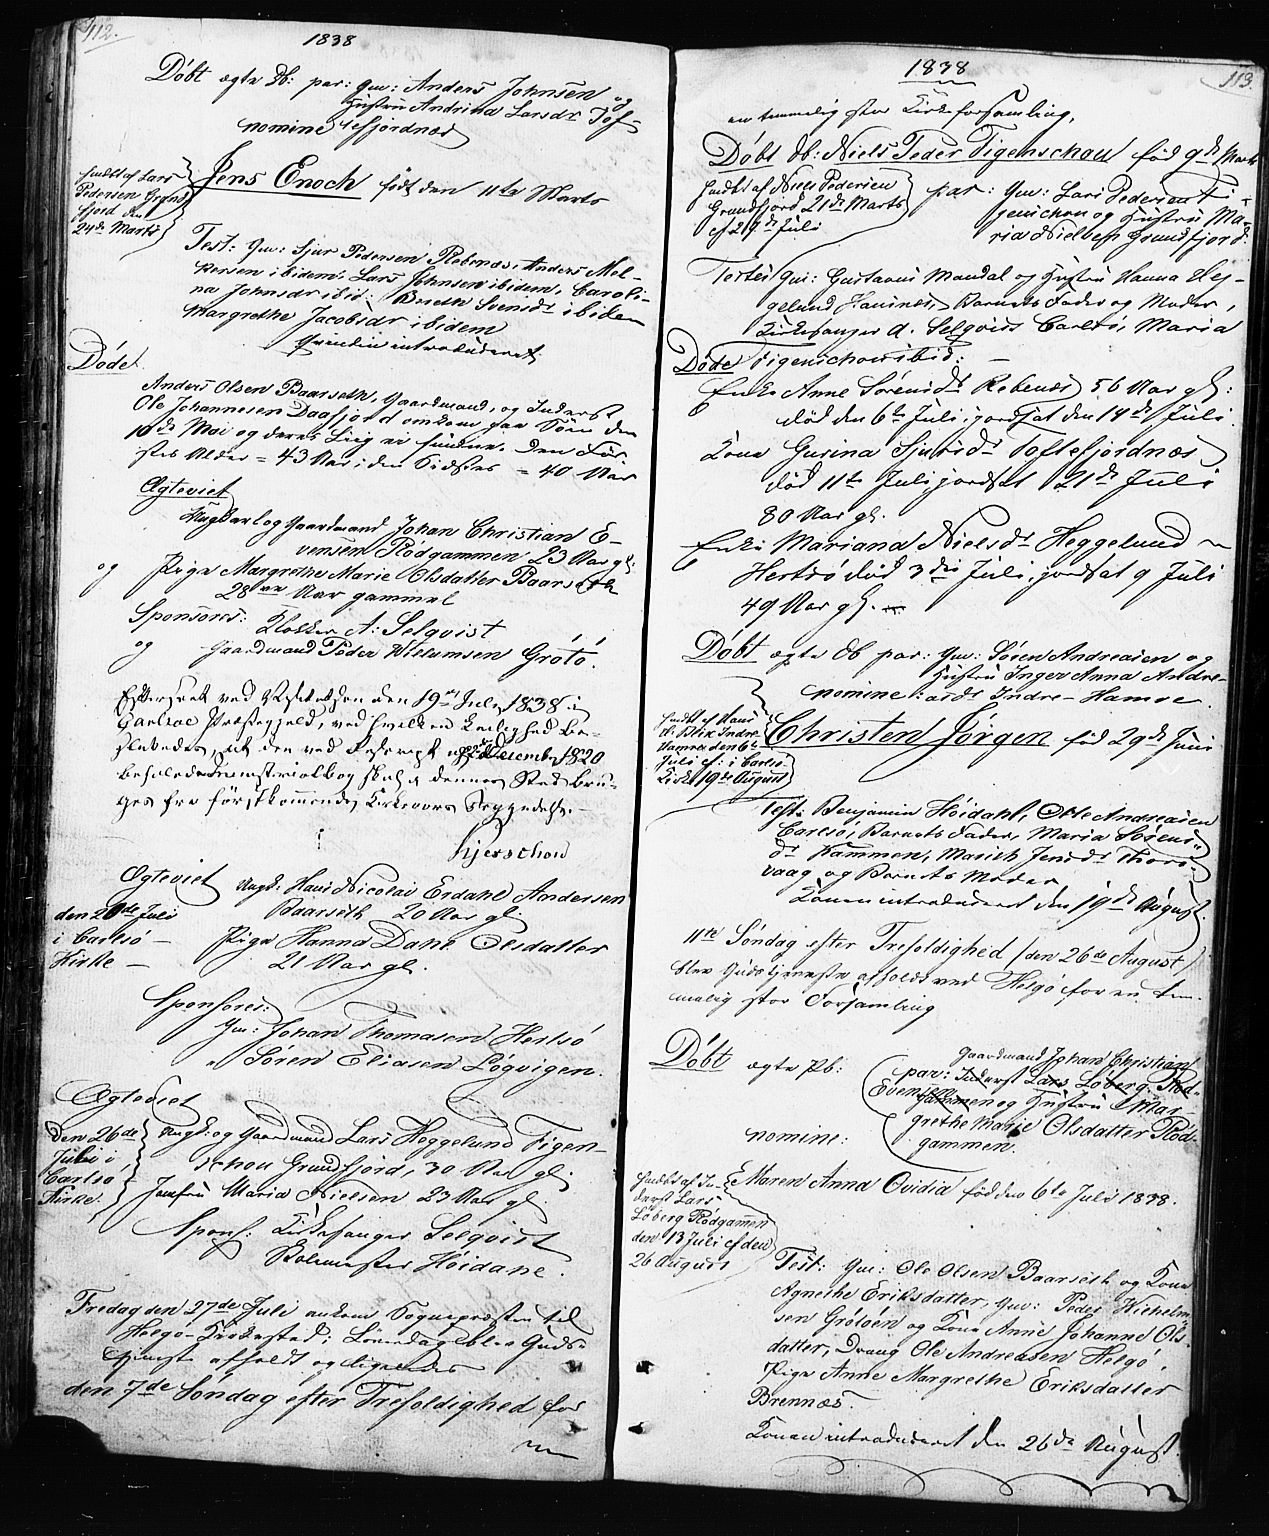 112.
1838
Døbt ægte Db: par: Gm: Anders Johnsen og
Hustru Andrina Larsdr Tof-
nomine tefjordnæs
hiedbt af Lars
Pedersen Grund
fjord den
24de Marts
Jens Enoch født den 11te Marts
Test: Gm: Sjur Pedersen Rebenæs, Anders Mel-
kersen ibidem, Lars Johnsen ibidem, Caroli-
na Johnsdr ibid: Birethe Svensdr ibidem
Margrethe Jacobsdr ibidem
Qvinden introduceret.
Døde
Anders Olsen Baarseth, Gaardmand, og Inderst
Ole Johannesen Daafjord omkom paa Søen den
10de Mai og deres Liig ei fundne. Den Før-
stes Alder = 43 Aar; den Sidstes = 40 Aar
Ægteviet
Ungkarl og Gaardmand Johan Christian E-
vensen Rødgammen 23 Aar gl:
og Pige Margrethe Marie Olsdatter Baarseth
28 Aar gammel
Sponsores: Klokker A: Selqvist
og Gaardmand Peder Wilumsen Grøtø.
Efterseet ved Visitatsen den 19de July 1838 i
Carlsøe Præstegjeld, ved hvilken Leilighed be-
sluttedes, at den ved Rescript af December 1820
befalede Ministerialbog skal i dennes Sted bru-
ges fra førstkommende Kirkeaars Begyndelse.
Kjerschow
Ægteviet
den 20de Juli
i Carlsø
Kirke
Ungk: Hans Nicolai Erdahl Andersen
Baarseth 20 Aar gl.
Pige Hanna Dahl Olsdatter
21 Aar gl.
Sponsores:
Gm: Johan Thomasen Hersø
" Søren Eliasen Løgvigen.
Ægteviet
den 26de
Juli i
Carlsø
Kirke.
Ungk: og Gaardmand Lars Heggelund Figen-
schou Grundfjord, 30 Aar gl.
Jomfru Maria Nielsen 23 Aar gl.
Spons: Kirkesanger Selqvist
Skolemester Høidane.
Fredag den 27de Juli ankom Sognepræsten til
Helgø Kirkested; Løverdag blev Guds-
tjeneste afholdt og ligeledes
den 7de Søndag efter Trefoldighed for
113.
1838
en temmelig stor Kirkeforsamling.
Døbt Db: Niels Peder Figenschou fød 9de Marts
hiedbt af Niels Pedersen
Grundfjord 21de Marts
cf 29de Juli
par: Gm: Lars Pedersen Fi-
genschou og Hustru Ma-
ria Nielsen Grundfjord.
Testes Gm: Gustavus Mandal og Hustru Hanna Hej-
gelund Hansnæs, Barnets Fader og Moder,
Kirkesanger A. Selqvist Carlsø, Maria
Figenschou ibid:
Døde
Enke Anne Sørensdr Rebenæs 56 Aar gl:
død den 6te Juli, jordsat den 14de Juli.
Kone Gurina Sjursdr Toftefjordnæs
død 11te Juli, jordsat 21de Juli
80 Aar gl.
Enke Mariana Nielsdr Heggelund
Hersø død 3die Juli, jordsat 9 Juli
49 Aar gl.
Døbt ægte Db par: Gm: Søren Andreasen og
Hustru Inger Anna Andre-
nomine: asdr Indre-Hamre.
hiedbt af Hans
H. Blik Indre
Hamre den 6te
Juli cf: i Carlsø
Kirke 19de August
Christen Jørgen fød 29de Juni
Test: Benjamin Høidahl, Otte Andreasen
Carlsø, Barnets Fader, Maria Sørens-
dr Kammen, Marith Jensdr Thors-
vaag og Barnets Moder
Konen introduceret den 19de August.
11te Søndag efter Trefoldighed /den 26de August/
blev Gudstjeneste afholdt ved Helgø for en tem-
melig stor Forsamling
Døbt ægte Pb:
Gaardmand Johan Christian
par: Inderst Lars Løberg Rød-
Evensen gammen og Hustru Mar-
grethe Marie Olsdatter Rød-
nomine: gammen.
hiedbt af In-
derst Lars
Løberg Rødgammen
den 13 Juli cf den
26 August
Maren Anna Ovidia fød den 6te Juli 1838.
Test: Gm: Ole Olsen Baarseth og Kone
Agnethe Eriksdatter, Gm: Peder Wilhelm-
sen Grøtøen og Kone Anne Johanne Ols-
datter, Dreng Ole Andreasen Helgø,
Pige Anne Margrethe Eriksdatter
Brennæs.
Konen introduceret den 26de August.